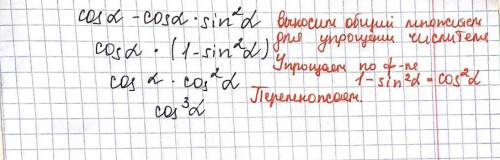 cosα - cosα · sin²α выносим общий множитель
для упрощении числителя
cosα · (1 - sin²α)
Упрощаем по ф-ле
1 - sin²α = cos²α
cos α · cos²α
Перемножаем.
cos³α